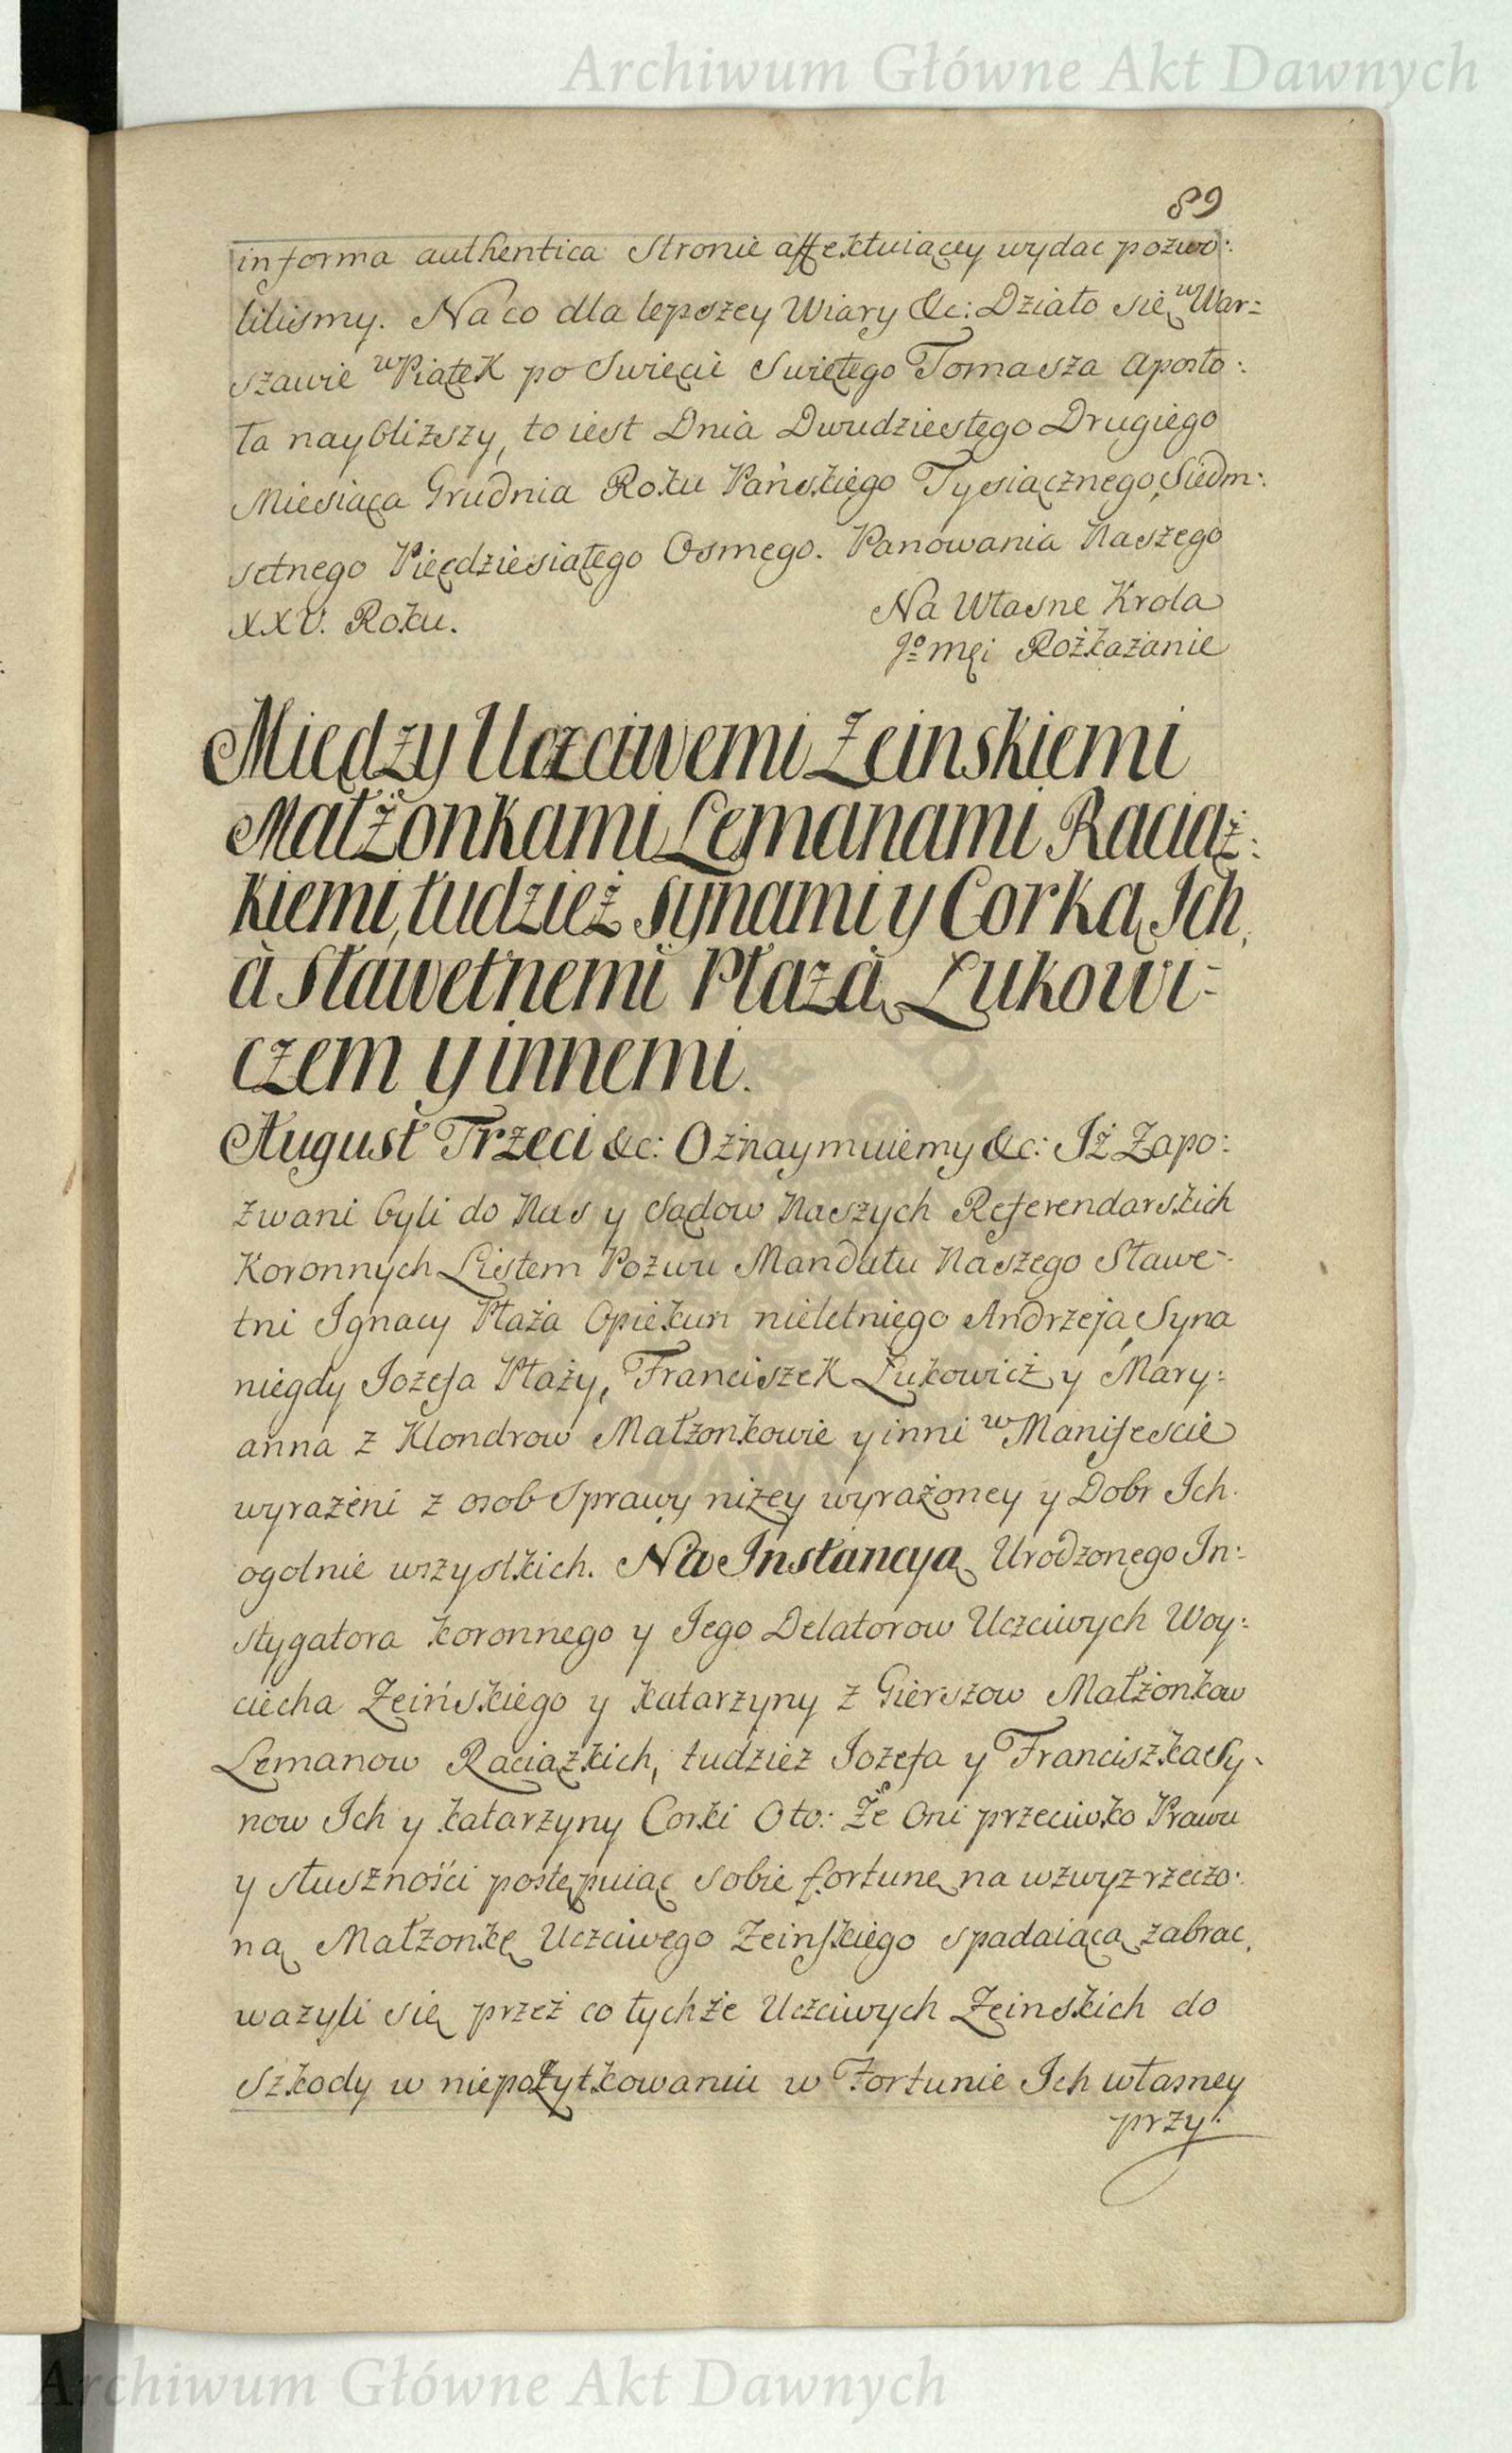 Archiwum Główne Akt Dawnych
89
in forma authentica Stronie affektuiącey wydac pozwo:
lilismy. Na co dla lepszey Wiary &c: Działo się w War=
szawie w Piątek po Swięcie Swiętego Tomasza Aposto:
ła naybliższy, to iest Dnia Dwudziestego Drugiego
Miesiąca Grudnia Roku Pańskiego Tysiącznego, Siedm:
setnego Pięcdziesiątego Osmego. Panowania Naszego
XXV. Roku.
Na Własne Krola
Jo męi Rożkażanie
Między Uczciwemi Zeinskiemi
Małżonkami Lemanami Raciąż:
kiemi, tudzież Synami y Corką Ich,
à Sławetnemi Płazą, Łukowi-
czem y innemi.
August Trzeci &c: Oznaymuiemy &c: Iż Zapo:
zwani byli do Nas y Sądow Naszych Referendarskich
Koronnych Listem Pozwu Mandatu Naszego Sławe-
tni Ignacy Płaża Opiekun nieletniego Andrzeja, Syna
niegdy Iozefa Płaży, Franciszek Łukowicż y Mary:
anna z Klondrow Małżonkowie y inni w Manifescie
wyrażeni z osob Sprawy niżey wyrażoney y Dobr Ich
ogolnie wszystkich. Na Instancyą Urodzonego In:
stygatora koronnego y Iego Delatorow Uczciwych Woy:
ciecha Zeińskiego y katarzyny z Gierszow Małżonkow
Lemanow Raciązkich, tudziez Iozefa y Franciszka Sy-
now Ich y katarzyny Corki Oto: Że Oni przeciwko Prawu
y słusznośći postępuiąc sobie fortunę na wzwyz rzeczo:
ną Małzonkę Uczciwego Zeinskiego spadaiącą zabrac,
wazyli się przeż co tychże Uczciwych Zeinskich do
szkody w niepożytkowaniu w Fortunie Ich własney
przy:
Archiwum Główne Akt Dawnych